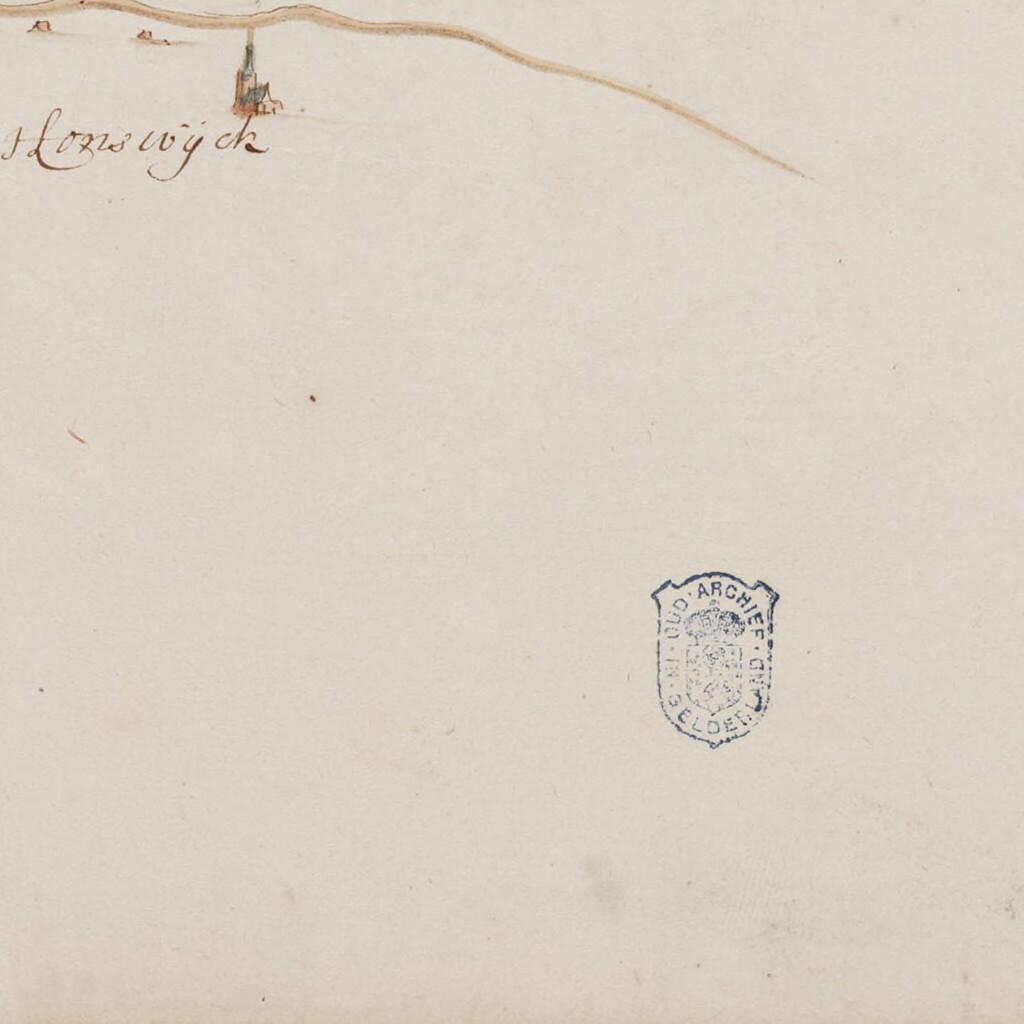 Honswÿck
OUD ARCHIEF
IN GELDERLAND